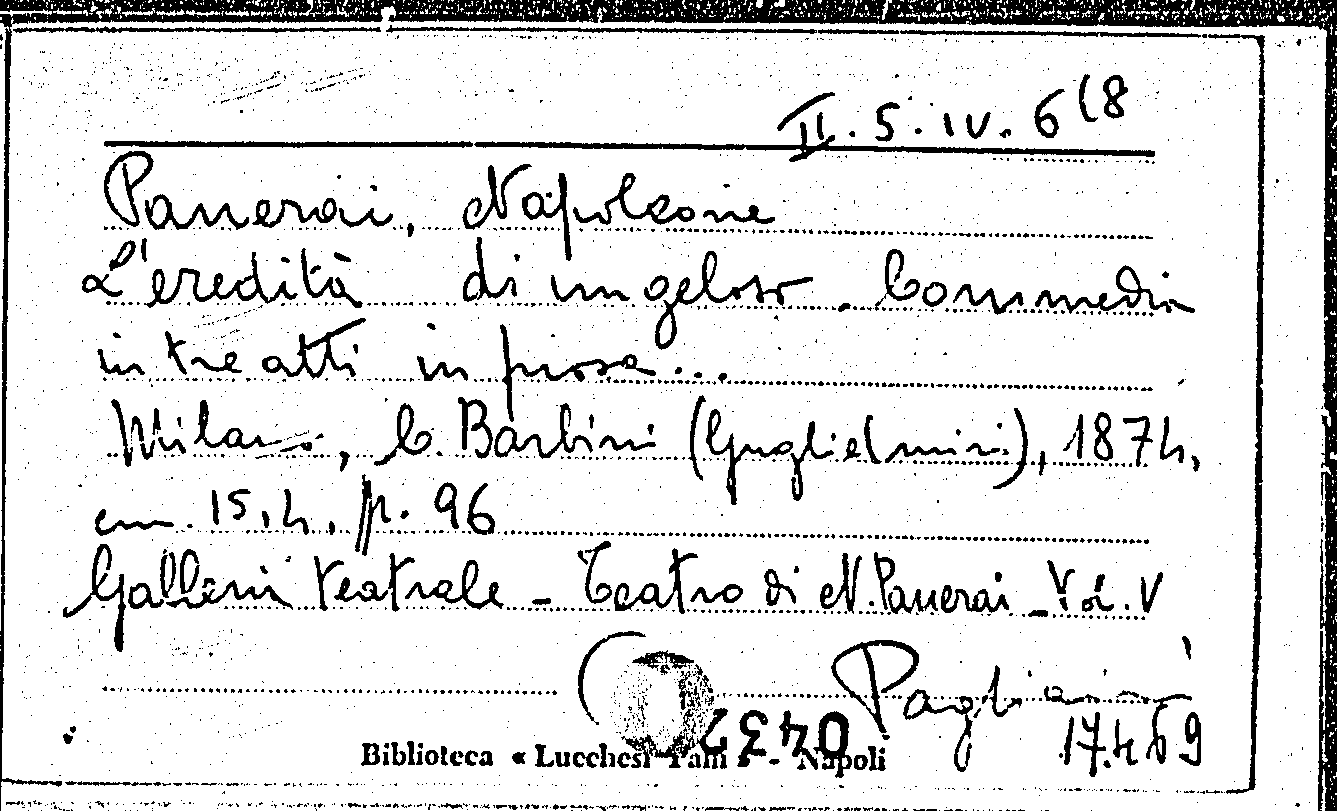 II. 5. IV. 6 (8
Panerai, Napoleone
L'eredità di un geloso. Commedia
in tre atti in prosa...
Milano, C. Barbini (Guglielmini), 1874,
cm. 15,4, p. 96
Galleria teatrale - Teatro di N. Panerai - Vol. V
17.4.69
Biblioteca « Lucchesi Palli » - Napoli